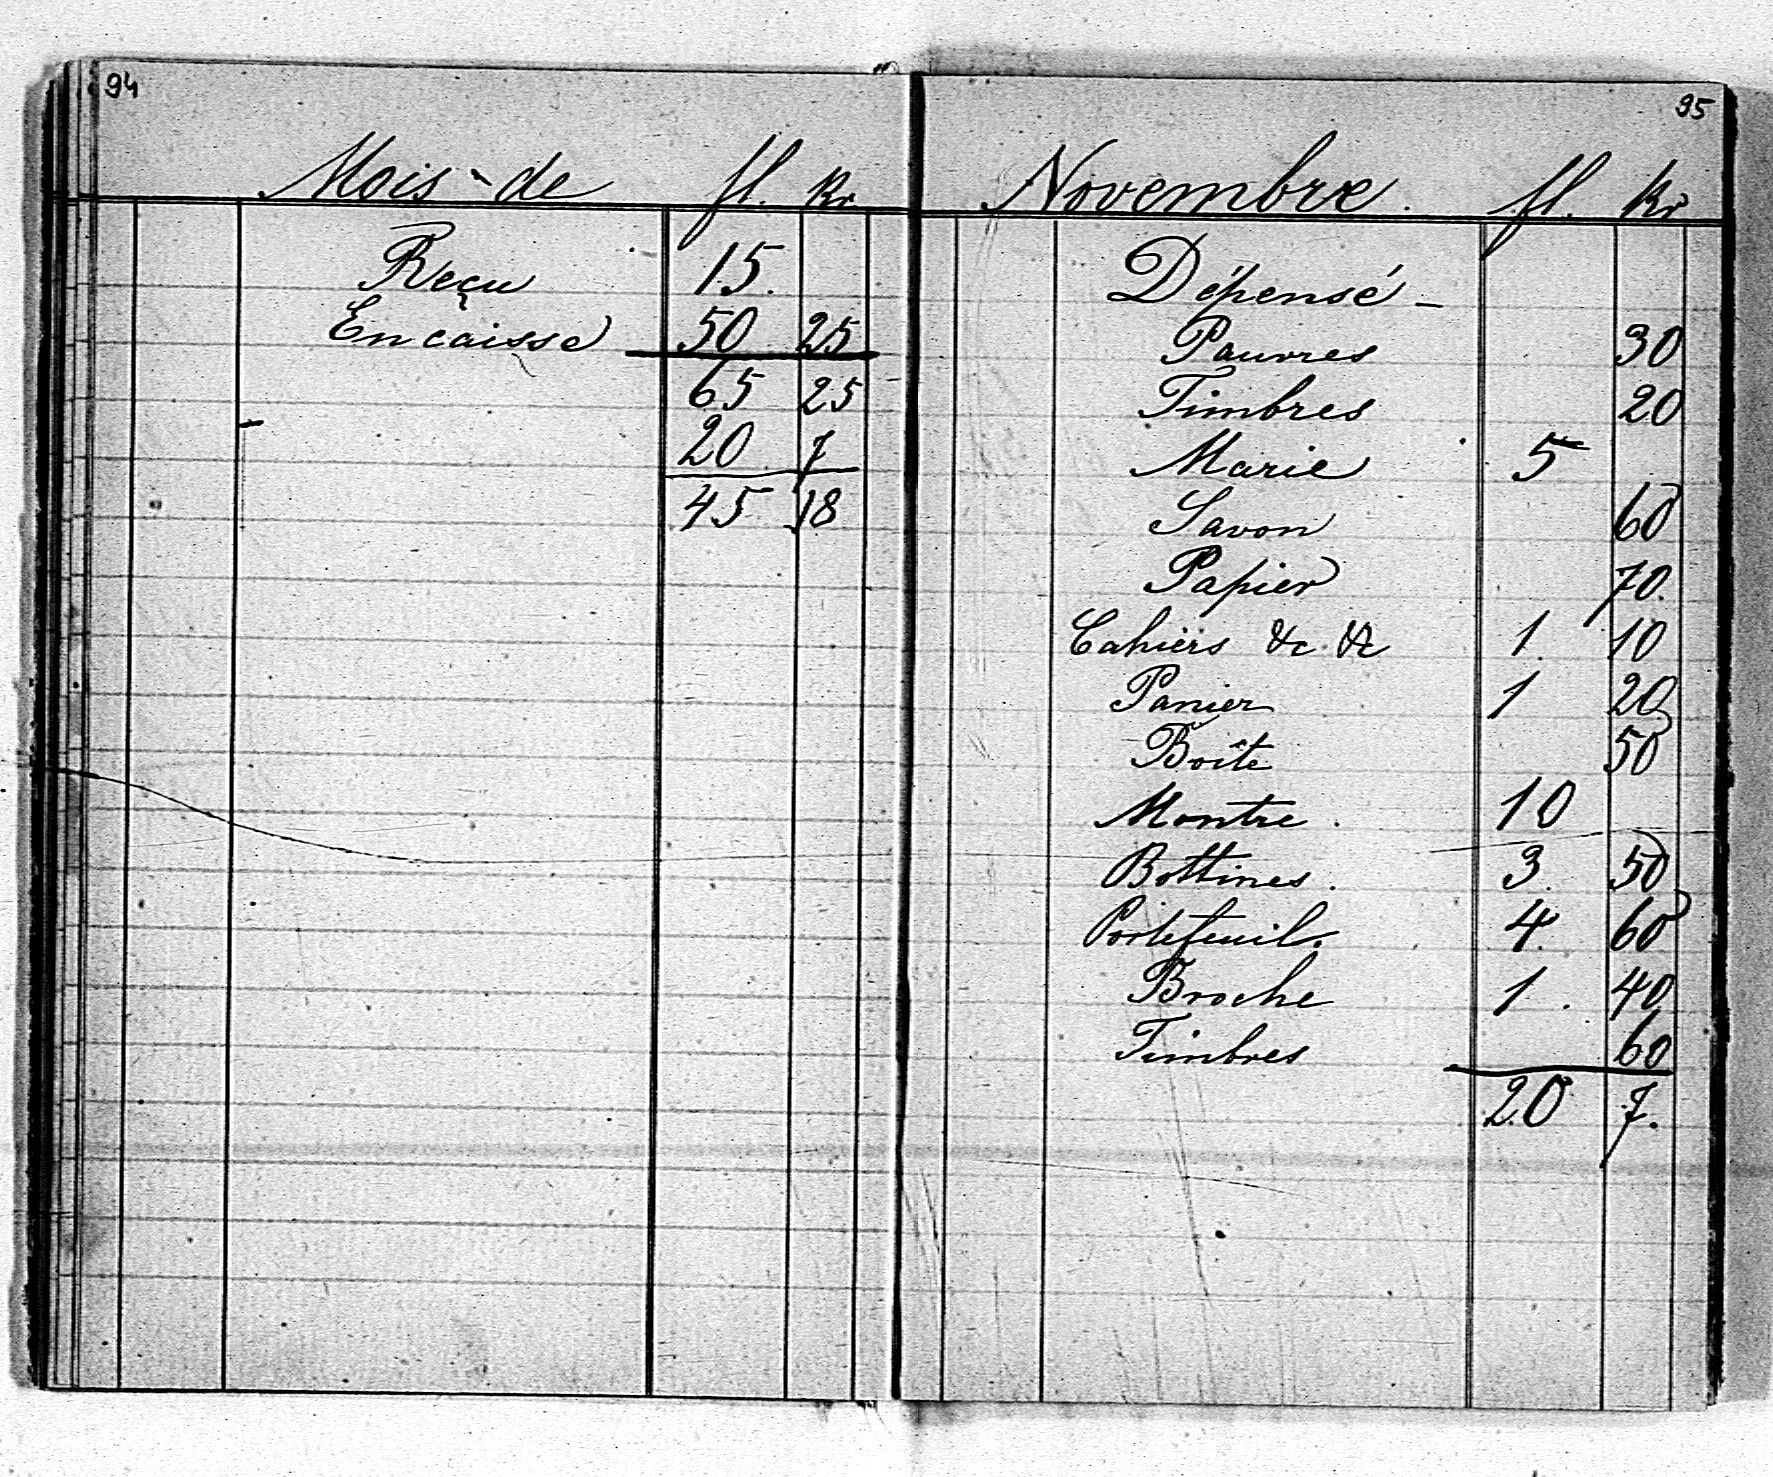 94
Mois-de fl. Kr
Reçu 15.
En caisse 50 25
65 25
20 7
45 18
95
Novembre. fl. Kr
Dépensé -
Pauvres 30
Timbres 20
Marie 5
Savon 60
Papier 70.
Cahiers &c &c 1. 10
Panier 1 20
Boîte 50
Montre. 10
Bottines. 3. 50
Portefeuil. 4. 60
Broche 1. 40
Timbres 60
20 7.